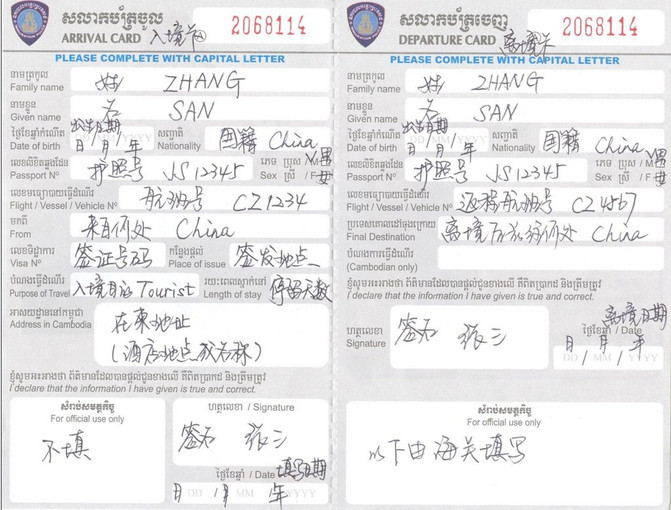 សលាកប័ត្រចូល
ARRIVAL CARD 入境卡
2068114
PLEASE COMPLETE WITH CAPITAL LETTER
នាមត្រកូល
Family name 姓 ZHANG
នាមខ្លួន
Given name 名 SAN
ថ្ងៃខែឆ្នាំកំណើត 出生日期 សញ្ជាតិ
Date of birth 日/月/年 YYYY Nationality 国籍 China
លេខលិខិតឆ្លងដែន ភេទ ប្រុស / M 男
Passport Nº 护照号 JS12345 Sex ស្រី / F 女
លេខមធ្យោបាយធ្វើដំណើរ
Flight / Vessel / Vehicle Nº 航班号 CZ1234
មកពី
From 来自何处 China
លេខទិដ្ឋាការ កន្លែងផ្តល់
Visa Nº 签证号码 Place of issue 签发地点
បំណងធ្វើដំណើរ រយៈពេលស្នាក់នៅ
Purpose of Travel 入境目的 Tourist Length of stay 停留天数
អាសយដ្ឋាននៅកម្ពុជា
Address in Cambodia 在柬地址
(酒店地点或名称)
ខ្ញុំសូមអះអាងថា ព័ត៌មានដែលបានផ្តល់ជូនខាងលើ គឺពិតប្រាកដ និងត្រឹមត្រូវ
I declare that the information I have given is true and correct.
សំរាប់សមត្ថកិច្ច
For official use only
不填
ហត្ថលេខា / Signature
签名 张三
ថ្ងៃខែឆ្នាំ / Date 填写日期
日 DD / 月 MM / 年 YYYY
សលាកប័ត្រចេញ
DEPARTURE CARD 离境卡
2068114
PLEASE COMPLETE WITH CAPITAL LETTER
នាមត្រកូល
Family name 姓 ZHANG
នាមខ្លួន
Given name 名 SAN
ថ្ងៃខែឆ្នាំកំណើត 出生日期 សញ្ជាតិ
Date of birth 日/月/年 YYYY Nationality 国籍 China
លេខលិខិតឆ្លងដែន ភេទ ប្រុស / M 男
Passport Nº 护照号 JS12345 Sex ស្រី / F 女
លេខមធ្យោបាយធ្វើដំណើរ
Flight / Vessel / Vehicle Nº 返程航班号 CZ4567
ប្រទេសគោលដៅចុងក្រោយ
Final Destination 离境后前往何处 China
បំណងការធ្វើដំណើរ
(Cambodian only)
ខ្ញុំសូមអះអាងថា ព័ត៌មានដែលបានផ្តល់ជូនខាងលើ គឺពិតប្រាកដ និងត្រឹមត្រូវ
I declare that the information I have given is true and correct.
ហត្ថលេខា
Signature 签名 张三
离境日期
ថ្ងៃខែឆ្នាំ / Date
日 DD / 月 MM / 年 YYYY
សំរាប់សមត្ថកិច្ច
For official use only
以下由海关填写